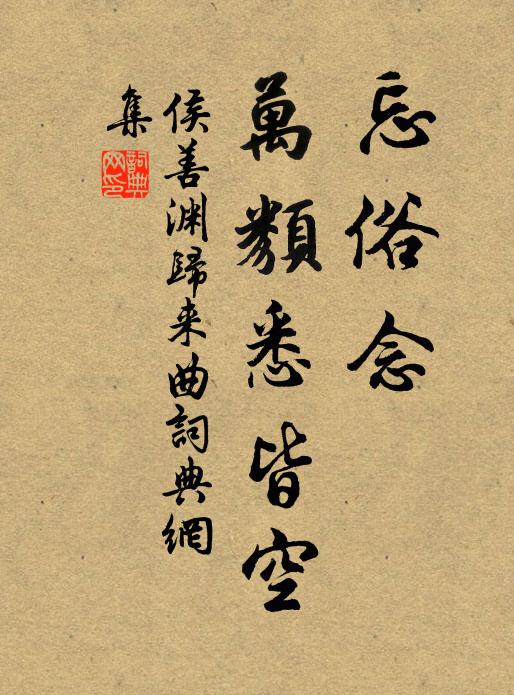 忘俗念
萬類悉皆空
侯善淵歸来曲詞典網
集
詞典網印